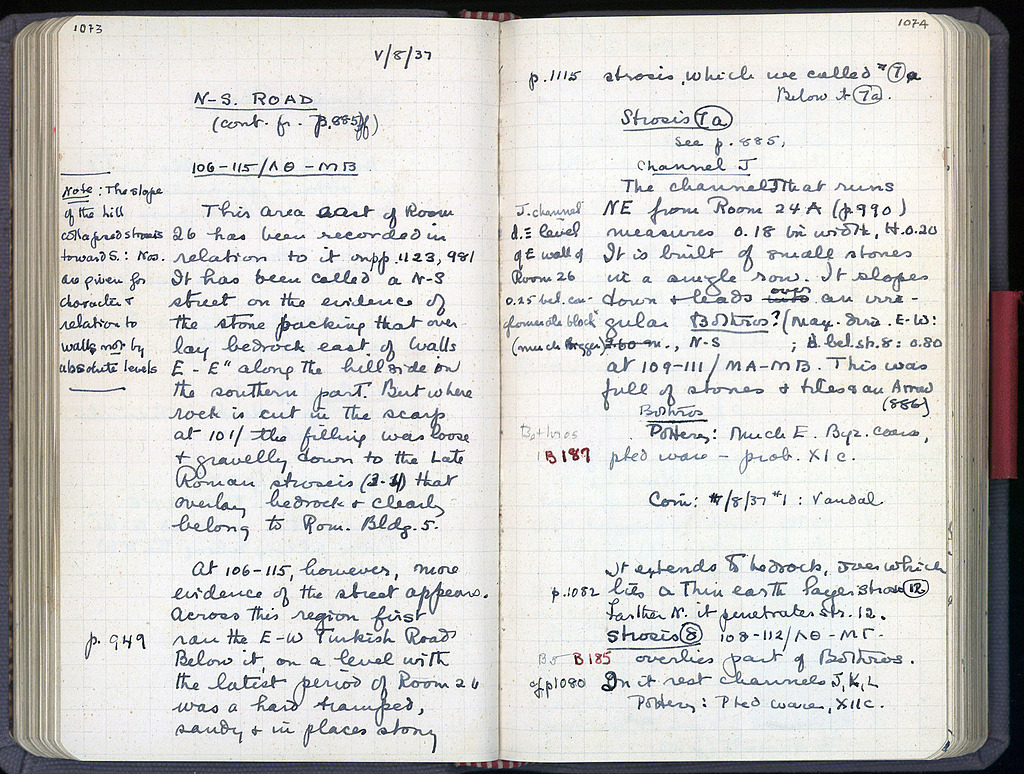 1073
V/8/37
N-S. ROAD
(cont. fr. p. 885ff)
106-115/ΛΘ-MB
Note: The slope
of the hill
collapsed strosis
toward S.: Nos.
are given for
character &
relation to
walls not by
absolute levels
This area east of Room
26 has been recorded in
relation to it on pp. 1123, 981
It has been called a N-S
street on the evidence of
the stone packing that over-
lay bedrock east of Walls
E-E" along the hillside on
the southern part. But where
rock is cut in the scarp
at 101/ the filling was loose
& gravelly down to the Late
Roman strosis (3-4) that
overlay bedrock & clearly
belong to Rom. Bldg. 5.
At 106-115, however, more
evidence of the street appears.
Across this region first
p. 949 ran the E-W Turkish Road
Below it, on a level with
the latest period of Room 26
was a hard tramped,
sandy & in places stony
1074
p. 1115 strosis, which we called 7
Below it 7a.
Strosis 7a
see p. 885,
Channel J
The channel J that runs
NE from Room 24A (p. 990)
measures 0.18 in width, H. 0.20
It is built of small stones
in a single row. It slopes
down & leads into over an irre-
gular Bothros? (Max. dim. E-W:
2.60 m., N-S ; d. bel. str. 8: 0.80
J. channel
d. = level
of E wall of
Room 26
0.25 bel.
block"
(much bigger)
at 109-111/MA-MB. This was
full of stones & tiles & an
(886)
Bothros
Bothros
B 187
Pottery: Much E. Byz. coarse,
pted ware - prob. XI c.
Coin: /8/37 #1: Vandal
It extends to bedrock, over which
p. 1082 lies a thin earth layer strosis 12
Farther N. it penetrates str. 12.
Strosis 8 108-112/ΛΘ-MΓ.
B 185 overlies part of Bothros.
cf p 1080 On it rest channels J, K, L
Pottery: Pted wares, XII c.